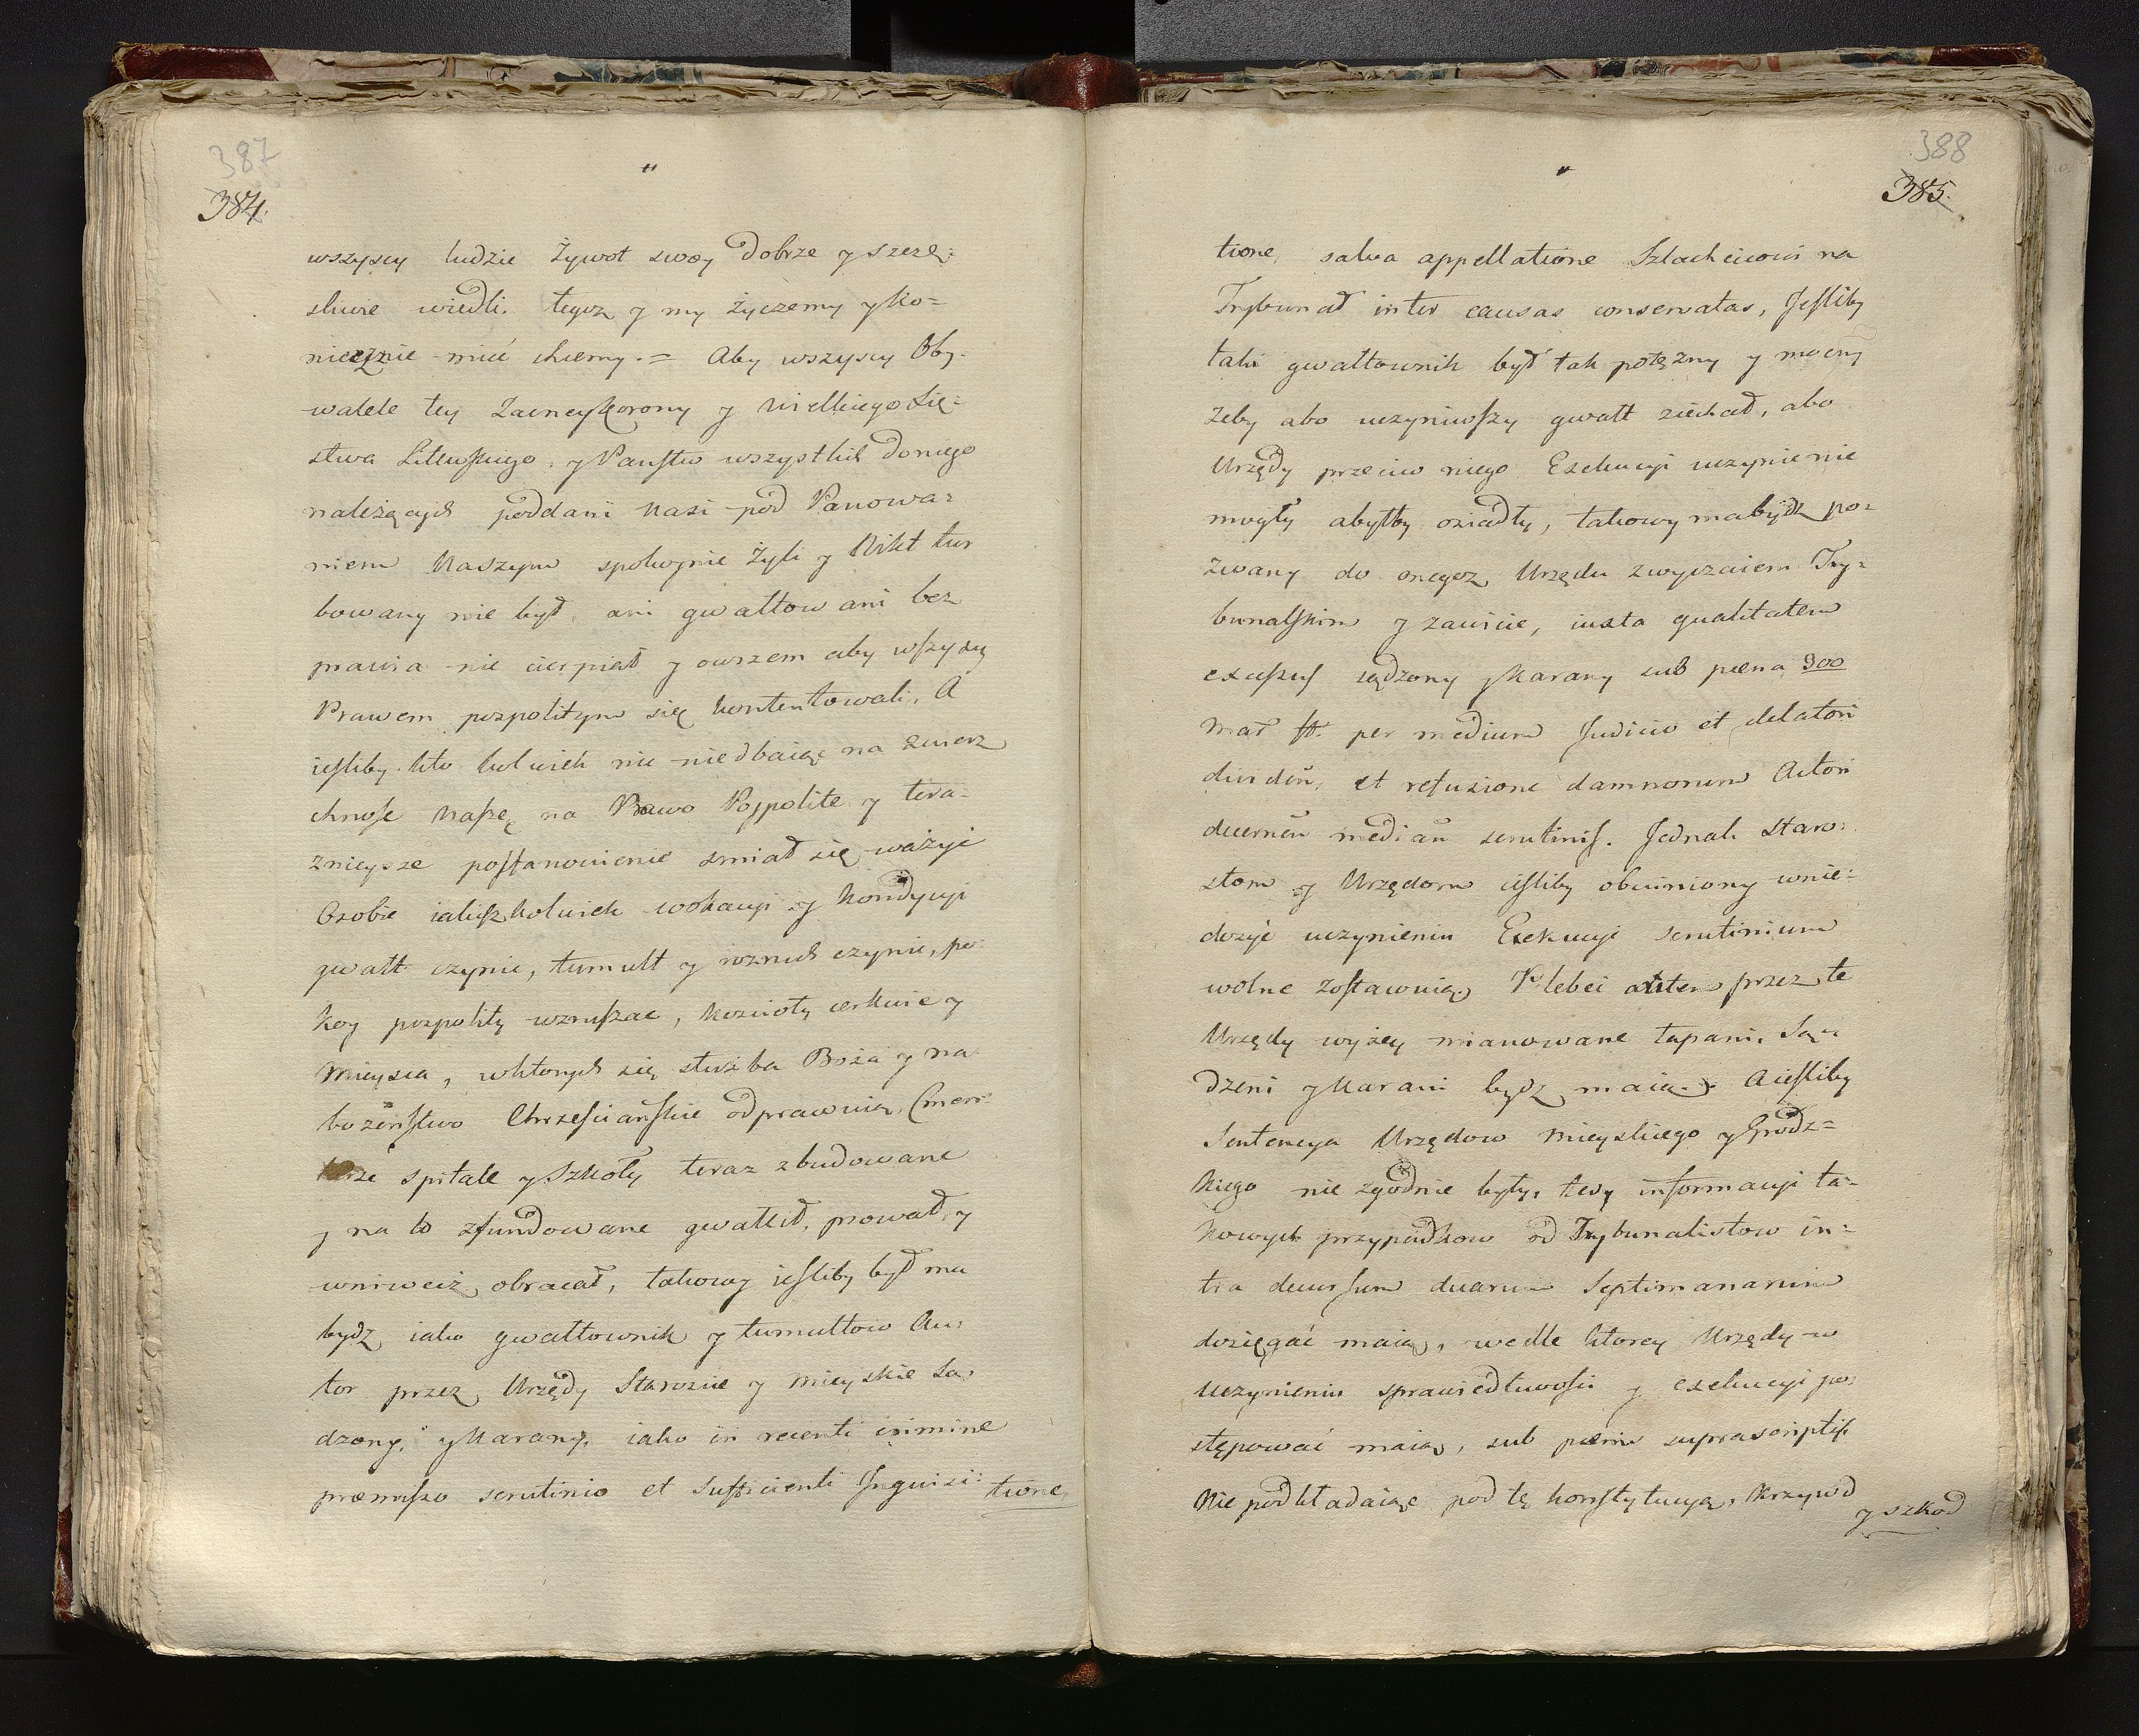 387
384.
"
wszyscy ludzie żywot swoy dobrze y szczę:
sliwie wiedli. tegoz y my życzemy y ko=
niecznie mieć chcemy. = Aby wszyscy Oby-
watele tey Zacney Korony y Wielkiego Xię:
stwa Litewskiego, y Państw wszystkich do niego
należących poddani Nasi pod Panowa:
niem Naszym spokoynie żyli y Nikt tur
bowany nie był, ani gwałtow ani bez
prawia nie cierpiał y owszem aby wszyscy
Prawem pospolitym się kontentowali. A
iesliby kto kolwiek nic niedbaiąc na zwierz
chnosc Naszę na Prawo Pospolite y tera-
znieysze postanowienie smiał się ważyć
Osobie iakieszkolwiek wokacyi y kondycyi
gwałt czynic, tumult y rozruch czynic, po:
koy pospolity wzruszac, kościoły cerkwie y
Mieysca, wktorych się służba Boża y na
bożeństwo Chrześciańskie odprawuią, Cmen:
tarze spitale y Szkoły teraz zbudowane
y na to zfundowane gwałcił, psował, y
wniwecz obracał, takowy iesliby był ma
bydz iako gwałtownik y tumultow Au:
tor przez Urzędy Staroscie y Mieyskie Są:
dzony, y karany, iako in recenti crimine
præmisso scrutinio et Sufficienti Inquisi:
tione
388
385.
"
tione, salva appellatione Szlachcicowi na
Trybunał inter causas conservatas, Jesliby
taki gwałtownik był tak potężny y mocny
żeby abo uczyniwszy gwałt ziechał, abo
Urzędy przeciw niego Exekucyi uczynienie
mogły abyłby osiadły, takowy ma bydz po:
zwany do onegoz Urzędu zwyczaiem Try:
bunalskim y zawicie, iuxta qualitatem
excessus sądzony y karany sub poena 300
Mar ff. per medium Judicio et delatori
dividen, et refusione damnorum Actori
ducernen median scrutinis. Jednak Staro:
stom y Urzędom iesliby obwiniony wnie:
doszłe uczynieniu Exekucyi scrutinium
wolne zostawuią. Plebei autem przez te
Urzędy wyżey mianowane łapani, Są:
dzeni y karani bydz maią. A iesliby
Sentencya Urzędow Mieyskiego y Grodz=
kiego nie zgodnie były, tedy informacyi ta:
kowych przypadkow od Trybunalistow in:
tra decursum duarum Septimanarum
dosięgać maią, wedle ktorey Urzędy w
uczynieniu sprawiedliwości y exekucyi po:
stępować maią, sub poenis suprascriptis
Nie podkładaiąc pod tę konstytucyą, krzywd
y szkod